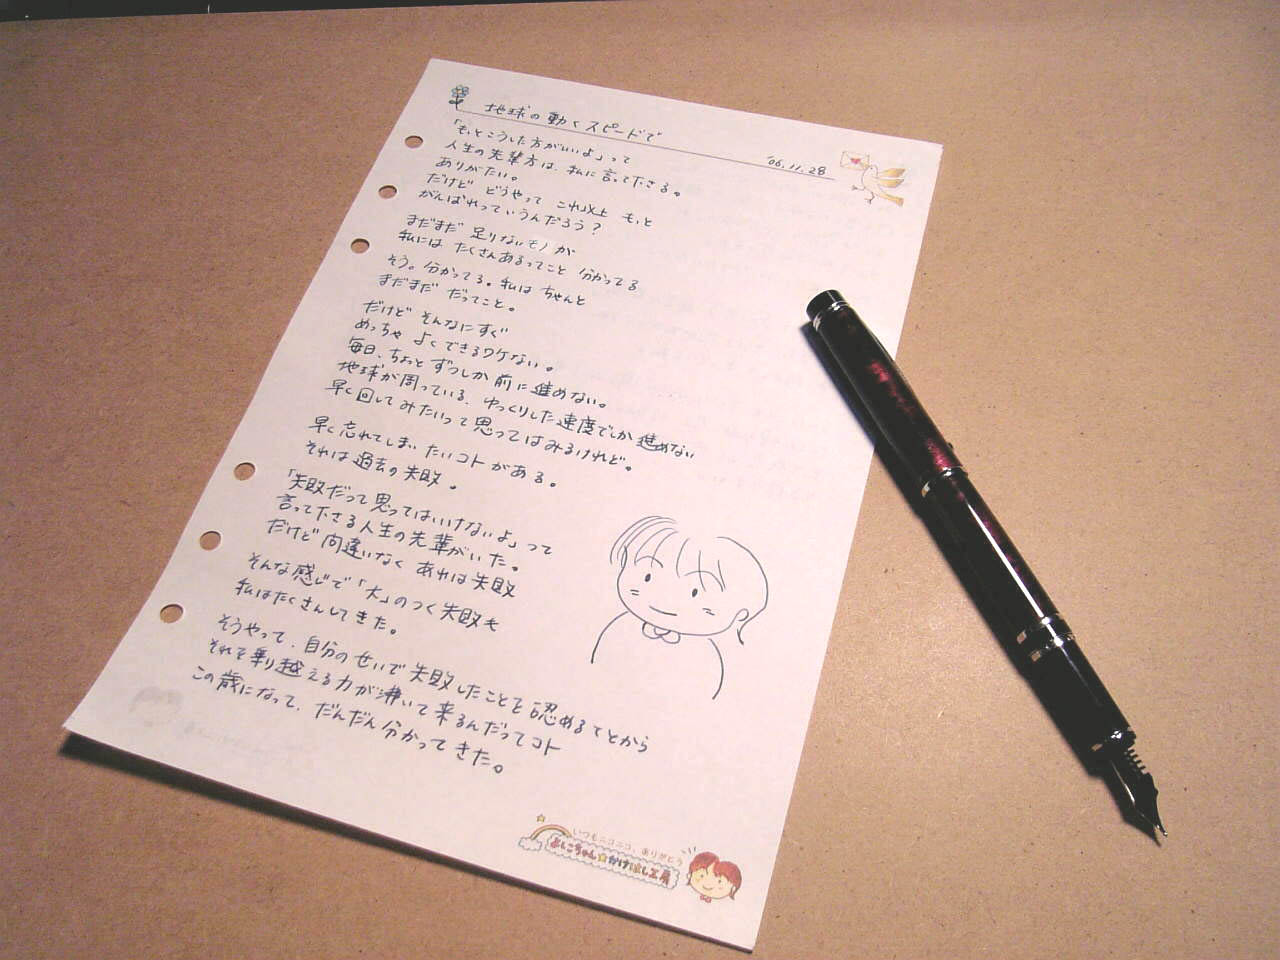 地球の動くスピードで
'06.11.28
「もっとこうした方がいいよ」って
人生の先輩方は、私に言って下さる。
ありがたい。
だけど どうやって これ以上 もっと
がんばれっていうんだろう?
まだまだ 足りないモノが
私には たくさんあるってこと 分かってる
そう。分かってる。私は ちゃんと
まだまだ だってこと。
だけど そんなにすぐ
めっちゃ よくできるワケない。
毎日、ちょっと ずつしか 前に進めない。
地球が周っている、ゆっくりした速度でしか進めない
早く回してみたいって思ってはみるけれど。
早く忘れてしまいたいコトがある。
それは過去の失敗。
「失敗だって思ってはいけないよ」って
言って下さる人生の先輩がいた。
だけど間違いなく あれは失敗
そんな感じで「大」のつく失敗も
私はたくさんしてきた。
そうやって、自分のせいで失敗したことを認めることから
それを乗り越える力が沸いて来るんだってコト
この歳になって、だんだん分かってきた。
いつもニコニコ、ありがとう
よしこちゃん☆かけはし工房